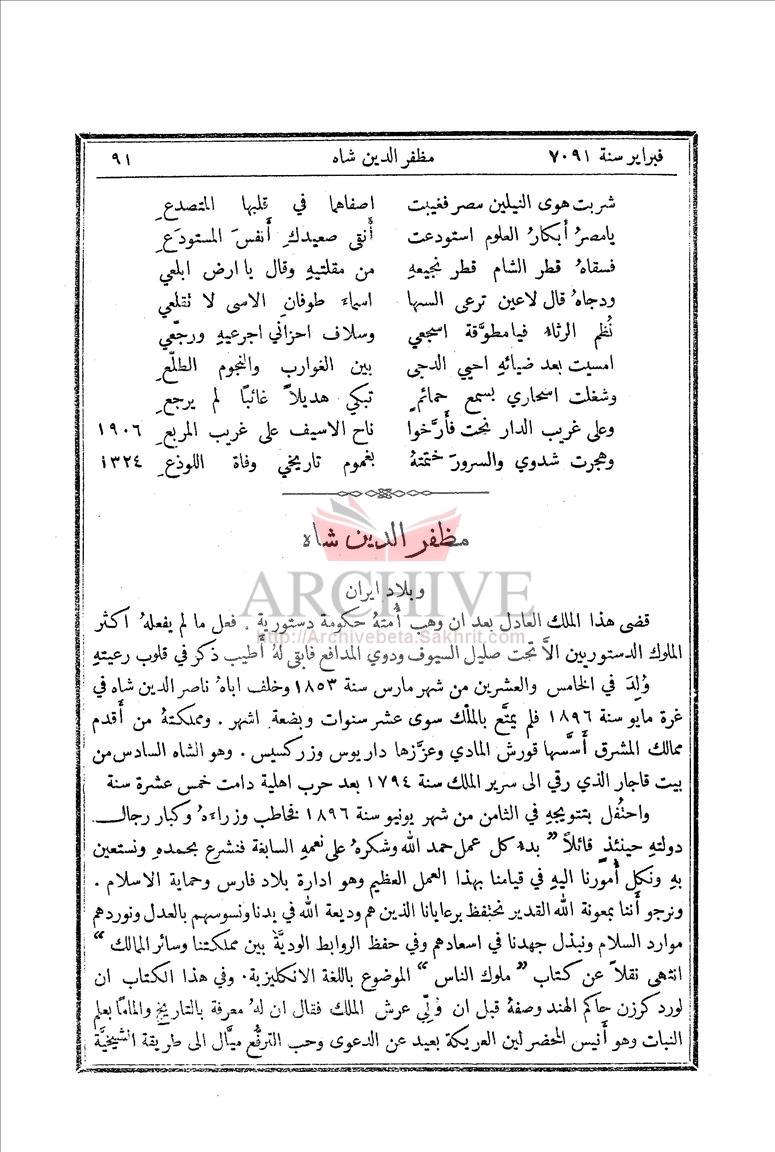 فبراير سنة ٧٠٩١ مظفر الدين شاه ٩١
شربت هوى النيلين مصر فغيبت اصفاهما في قلبها المتصدعِ
يامصرُ أبكارُ العلوم استودعت أنقى صعيدكِ أنفسَ المستودَعِ
فسقاهُ قطر الشام قطر نجيعهِ من مقلتيهِ وقال يا ارض ابلعي
ودجاهُ قال لاعين ترعى السها اسماء طوفانِ الاسى لا تقلعي
نُظم الرثاء فيا مطوَّقة اسجعي وسلاف احزاني اجرعيهِ ورجّعي
امسيت بعد ضيائهِ احيي الدجى بين الغوارب والنجوم الطلّعِ
وشغلت اسحاري بسمع حمائمٍ تبكي هديلاً غائبًا لم يرجعِ
وعلى غريب الدار نحت فأرَّخوا ناح الاسيف على غريب المربعِ ١٩٠٦
وهجرت شدوي والسرورَ ختمتهُ بغموم تاريخي وفاة اللوذعِ ١٣٢٤
مظفر الدين شاه
ARCHIVE
وبلاد ايران
http://Archivebeta.Sakhrit.com
قضى هذا الملك العادل بعد ان وهب أُمتهُ حكومة دستورية . فعل ما لم يفعلهُ اكثر
الملوك الدستوريين الاَّ تحت صليل السيوف ودوي المدافع فابقى لهُ أطيب ذكر في قلوب رعيتهِ
وُلِدَ في الخامس والعشرين من شهر مارس سنة ١٨٥٣ وخلف اباهُ ناصر الدين شاه في
غرة مايو سنة ١٨٩٦ فلم يمتَّع بالملك سوى عشر سنوات وبضعة اشهر . ومملكتهُ من أقدم
ممالك المشرق أسَّسها قورش المادي وعزَّزها داريوس وزركسيس . وهو الشاه السادس من
بيت قاجار الذي رقي الى سرير الملك سنة ١٧٩٤ بعد حرب اهلية دامت خمس عشرة سنة
واحتُفل بتتويجهِ في الثامن من شهر يونيو سنة ١٨٩٦ فخاطب وزراءهُ وكبار رجال
دولتهِ حينئذٍ قائلاً " بدء كل عمل حمد الله وشكرهُ على نعمهِ السابغة فنشرع بحمدهِ ونستعين
بهِ ونكل أُمورنا اليهِ في قيامنا بهذا العمل العظيم وهو ادارة بلاد فارس وحماية الاسلام .
ونرجو أننا بمعونة الله القدير نحتفظ برعايانا الذين هم وديعة الله في يدنا ونسوسهم بالعدل ونوردهم
موارد السلام ونبذل جهدنا في اسعادهم وفي حفظ الروابط الوديَّة بين مملكتنا وسائر الممالك "
انتهى نقلاً عن كتاب " ملوك الناس " الموضوع باللغة الانكليزية . وفي هذا الكتاب ان
لورد كرزن حاكم الهند وصفهُ قبل ان وُلِّي عرش الملك فقال ان لهُ معرفة بالتاريخ والمامًا بعلم
النبات وهو أنيس المحضر لين العريكة بعيد عن الدعوى وحب الترفُّع ميَّال الى طريقة الشيخيَّة